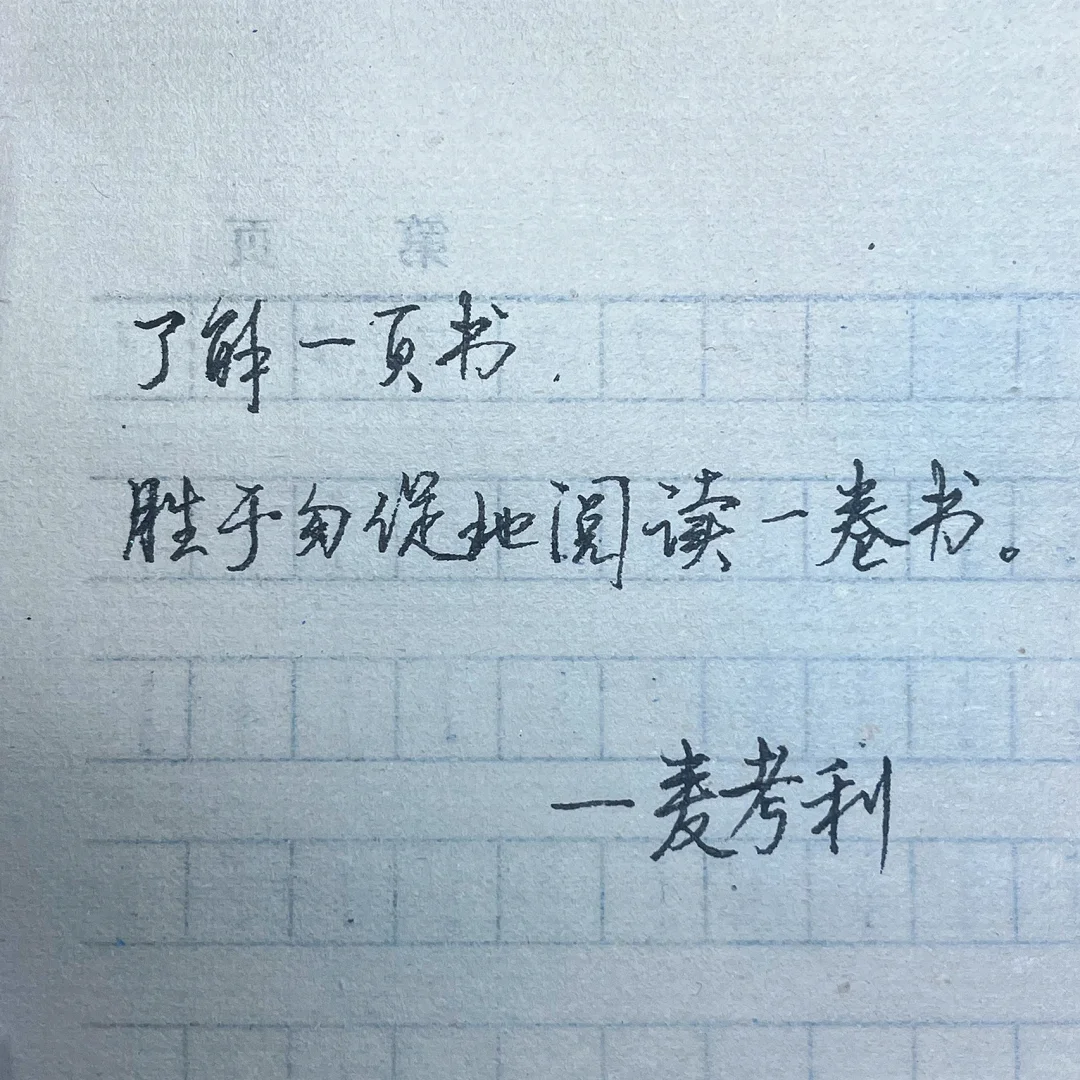 第 页
了解一页书，
胜于匆促地阅读一卷书。
—麦考利